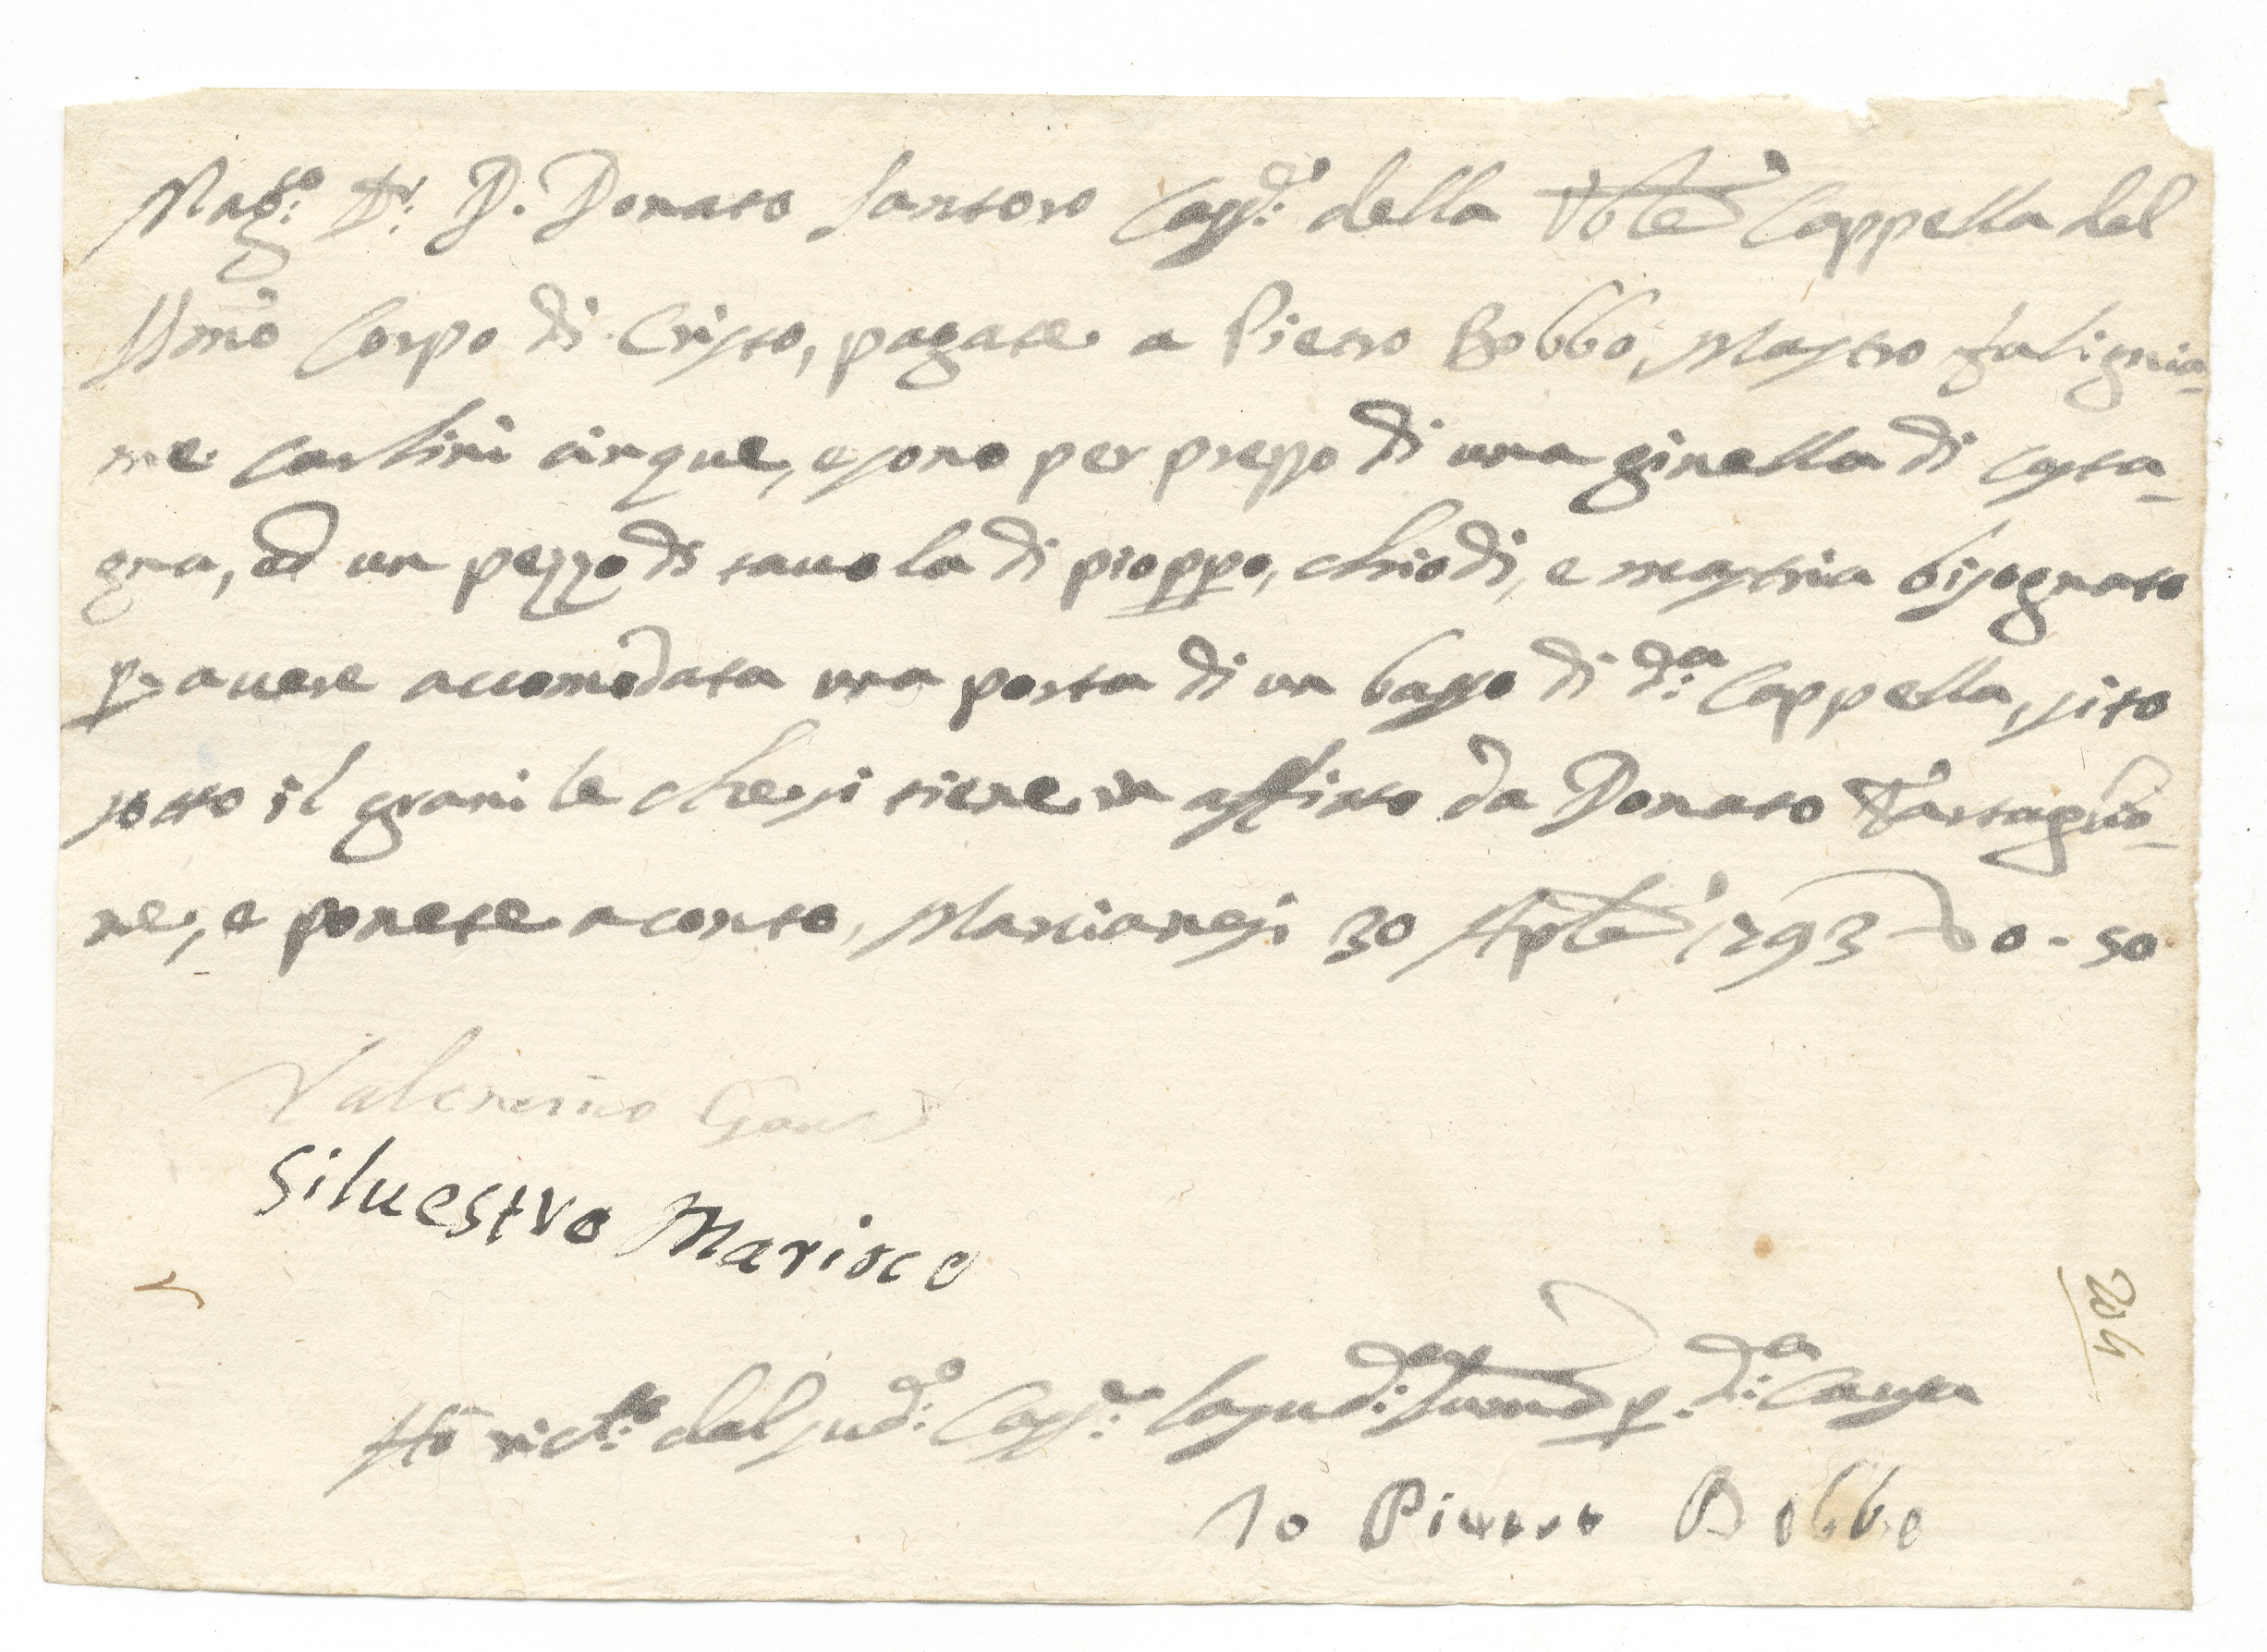 Mag:co Dr: D. Donato Santoro Cass:ro della Vble Cappella del
SSmo Corpo di Cristo, pagate a Pietro Bobbo, Mastro falignia-
me carlini cinque, e sono per prezzo di una ginella di casta-
gna, ed un pezzo di tauola di pioppo, chiodi, e mastria bisognato
p. auere accomodata una porta di un basso di d:a Cappella, sito
sotto il granile che si tiene in affitto da Donato Tartaglio-
ne, e ponete a conto, Marcianesi 30 Aple 1793 D 0-50
Valentino
Siluestro Marisco
Ho ricto: dal sud:o Cass:ro la sud:a summa p. d:a causa
Io Pietro Bobbo
204